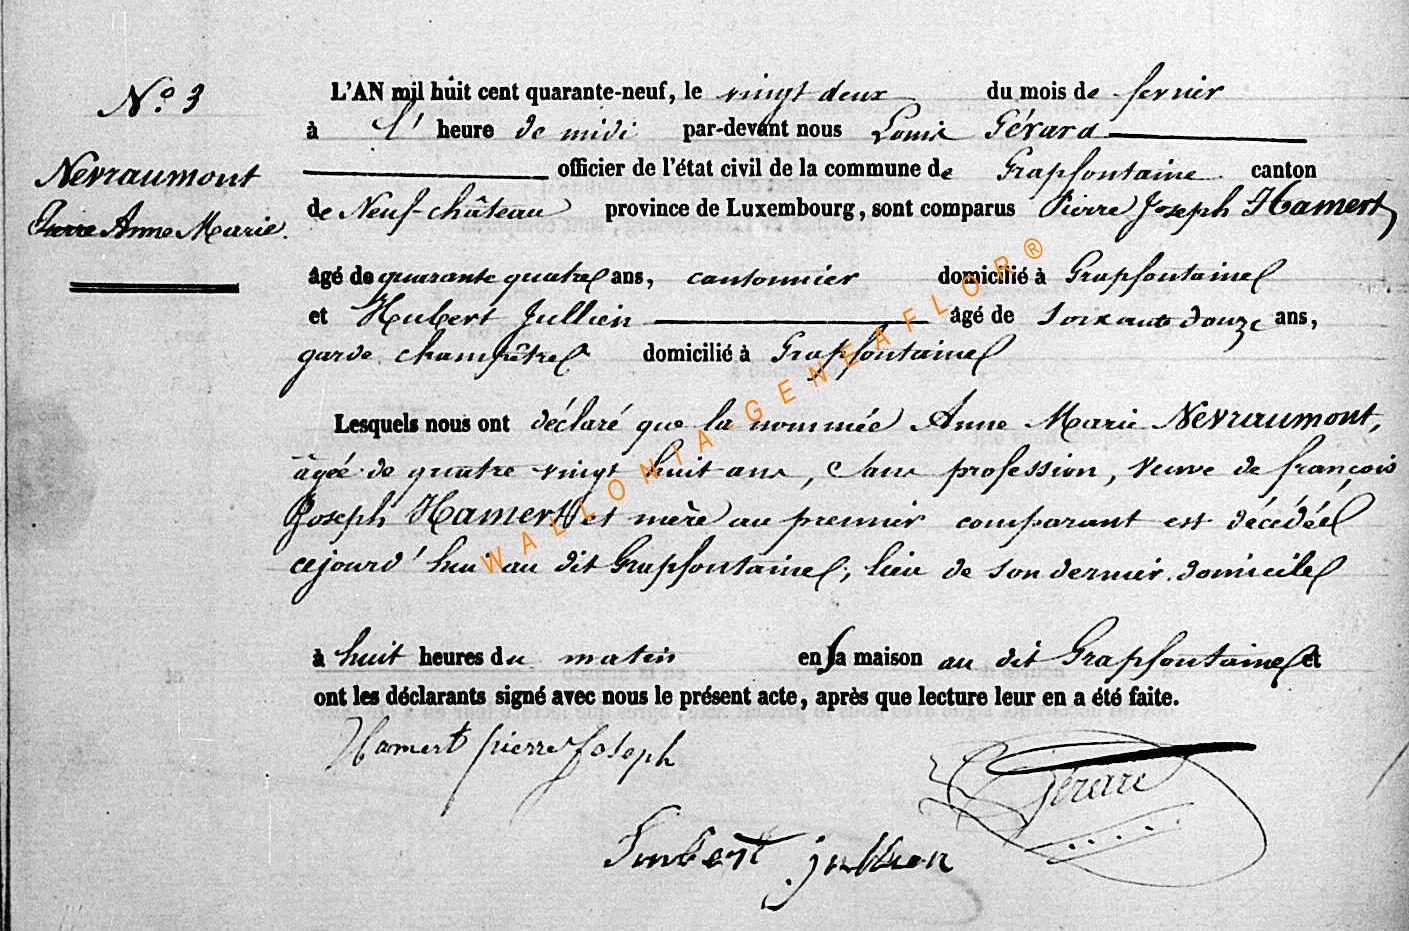 N.º 3
Nevraumont
Pierre Anne Marie.
L'AN mil huit cent quarante-neuf, le vingt deux du mois de fevrier
à l' heure de midi par-devant nous Louis Gérard
officier de l'état civil de la commune de Grapfontaine canton
de Neuf-château province de Luxembourg, sont comparus Pierre Joseph Hamert,
âgé de quarante quatre ans, cantonnier domicilié à Grapfontaine
et Hubert Jullien âgé de soixante douze ans,
garde champêtre domicilié à Grapfontaine
Lesquels nous ont déclaré que la nommée Anne Marie Nevraumont,
âgée de quatre vingt huit ans, sans profession, veuve de françois
Joseph Hamert et mère au premier comparant est décédée
cejourd'hui au dit Grapfontaine, lieu de son dernier domicile
à huit heures du matin en sa maison au dit Grapfontaine et
ont les déclarants signé avec nous le présent acte, après que lecture leur en a été faite.
Hamert pierre Joseph
Gérard
hubert jullien
WALLONIA-GENEAFLOR®